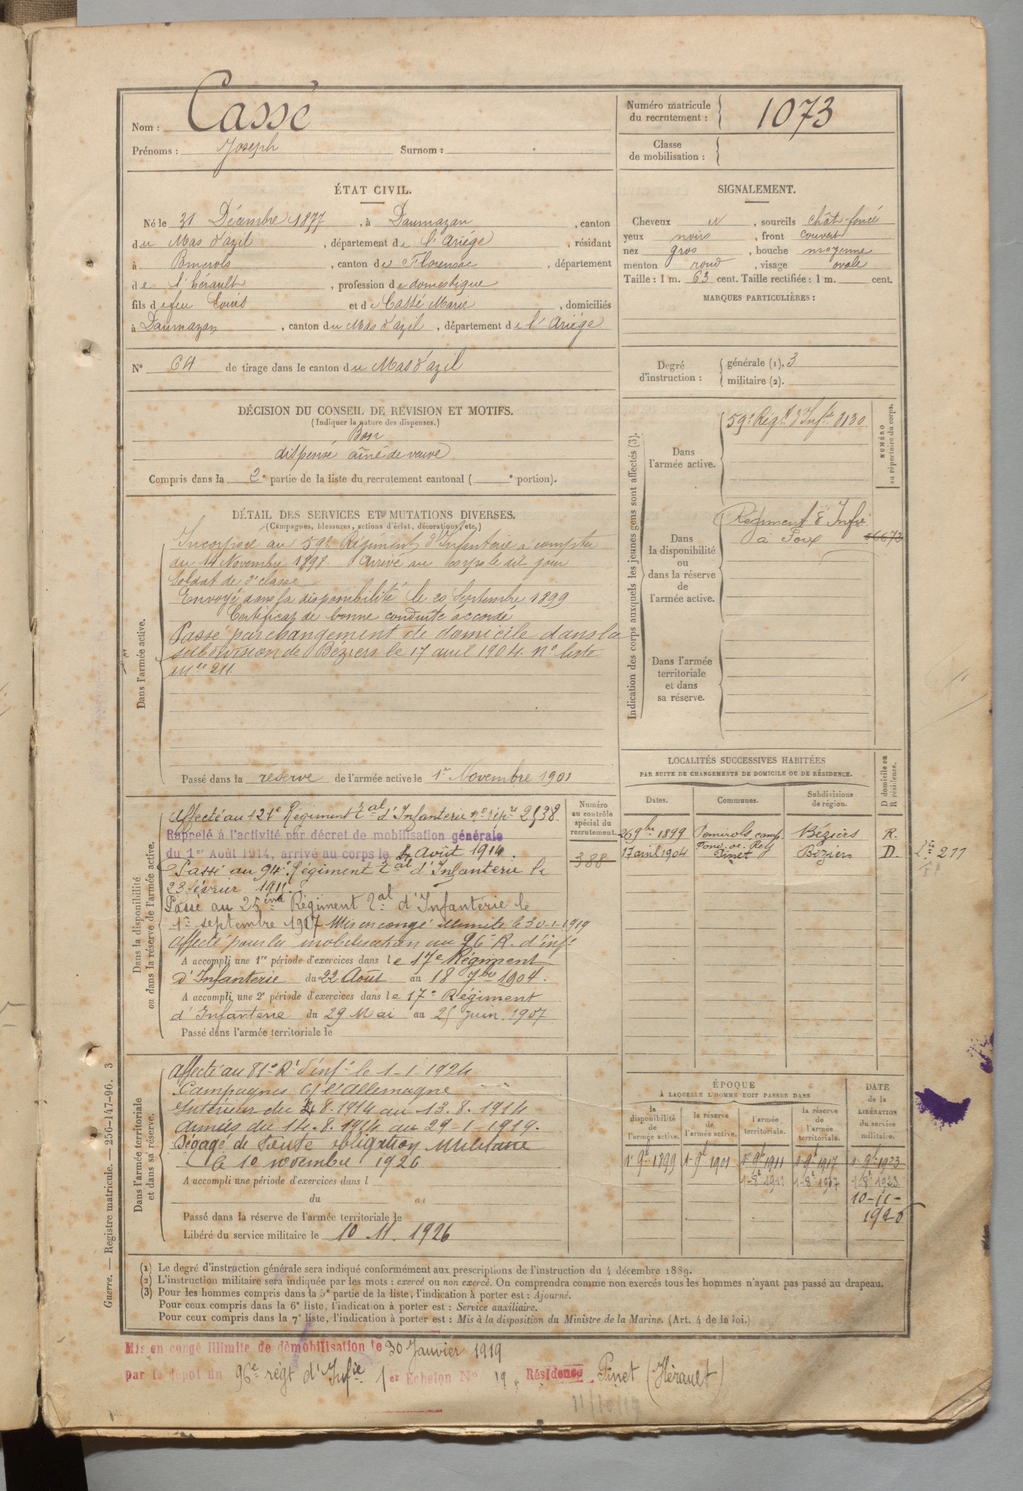 Nom : Cassé
Prénoms : Joseph Surnom : .
Numéro matricule du recrutement : 1073
Classe de mobilisation :
ÉTAT CIVIL.
Né le 31 Décembre 1877, à Daumazan, canton
du Mas d'azil, département de l'Ariége, résidant
à Pomerols, canton de Florensac, département
de l'hérault, profession de domestique
fils de feu Louis et de Cassé Marie, domiciliés
à Daumazan, canton du Mas d'azil, département de l'Ariége
N° 64 de tirage dans le canton du Mas d'azil
SIGNALEMENT.
Cheveux N, sourcils chât-foncé
yeux noirs, front couvert
nez gros, bouche moyenne
menton rond, visage ovale
Taille : 1 m. 63 cent. Taille rectifiée : 1 m. cent.
MARQUES PARTICULIÈRES :
Degré d'instruction : générale (1). 3
militaire (2).
DÉCISION DU CONSEIL DE RÉVISION ET MOTIFS.
(Indiquer la nature des dispenses.)
Bon
dispensé aîné de veuve
Compris dans la 2e partie de la liste du recrutement cantonal ( e portion).
DÉTAIL DES SERVICES ET MUTATIONS DIVERSES.
(Campagnes, blessures, actions d'éclat, décorations, etc.)
Dans l'armée active.
Incorporé au 59e Régiment d'Infanterie à compter
du 14 Novembre 1898 Arrivé au corps le dit jour
Soldat de 2e classe
Envoyé dans la disponibilité le 20 Septembre 1899
Certificat de bonne conduite accordé
Passé par changement de domicile dans la
subdivision de Béziers le 17 avril 1904. N° liste
Mle 211
Passé dans la réserve de l'armée active le 1er Novembre 1901
Indication des corps auxquels les jeunes gens sont affectés (3).
NUMÉRO au répertoire du corps.
Dans l'armée active.
59e Régt d'Infie 0130
Dans la disponibilité ou dans la réserve de l'armée active.
Régiment d'Infie
à Foix
Dans l'armée territoriale et dans sa réserve.
LOCALITÉS SUCCESSIVES HABITÉES
PAR SUITE DE CHANGEMENTS DE DOMICILE OU DE RÉSIDENCE.
Dates. Communes. Subdivisions de région. D domicile ou R résidence.
26 9bre 1899 Pomerols Béziers R.
17 avril 1904 Pinet Béziers D. 211
Dans la disponibilité ou dans la réserve de l'armée active.
Numéro au contrôle spécial du recrutement.
388
Affecté au 121e Régiment tal d'Infanterie n° répre 2538.
Rappelé à l'activité par décret de mobilisation générale
du 1er Août 1914, arrivé au corps le 4 Août 1914.
Passé au 94e Régiment tal d'Infanterie le
Passé au 25ème Régiment tal d'Infanterie le
1er septembre 1917 Mis en congé illimité le 30-1-1919
affecté pour la mobilisation au 96e R. d'infie
A accompli une 1re période d'exercices dans le 17e Régiment
d'Infanterie du 22 Août au 18 7bre 1904.
A accompli une 2e période d'exercices dans le 17e Régiment
d'Infanterie du 29 Mai au 25 Juin 1907
Passé dans l'armée territoriale le
Dans l'armée territoriale et dans sa réserve.
affecté au 81e Rt d'infie le 1-1 1924
Campagnes C/ l'Allemagne
Intérieur du 4.8.1914 au 13.8.1914
Armées du 14.8.1914 au 29-1-1919.
Dégagé de toute obligation Militaire
le 10 novembre 1926
A accompli une période d'exercices dans l
du au
Passé dans la réserve de l'armée territoriale le
Libéré du service militaire le 10 11. 1926
ÉPOQUE
À LAQUELLE L'HOMME DOIT PASSER DANS
la disponibilité de l'armée active. la réserve de l'armée active. l'armée territoriale. la réserve de l'armée territoriale.
DATE de la LIBÉRATION du service militaire.
1er 9bre 1899 1er 9bre 1901 1er 9bre 1911 1er 9bre 1917 1er 9bre 1923
10-11-
1926
(1) Le degré d'instruction générale sera indiqué conformément aux prescriptions de l'instruction du 4 décembre 1889.
(2) L'instruction militaire sera indiquée par les mots : exercé ou non exercé. On comprendra comme non exercés tous les hommes n'ayant pas passé au drapeau.
(3) Pour les hommes compris dans la 5e partie de la liste, l'indication à porter est : Ajourné.
Pour ceux compris dans la 6e liste, l'indication à porter est : Service auxiliaire.
Pour ceux compris dans la 7e liste, l'indication à porter est : Mis à la disposition du Ministre de la Marine. (Art. 4 de la loi.)
Guerre. — Registre matricule. — 256-147-96. 3
Mis en congé illimité de démobilisation le 30 Janvier 1919
par le dépôt du 96e régt d'Infie 1er Echelon N° 19. Résidence Pinet (Hérault)